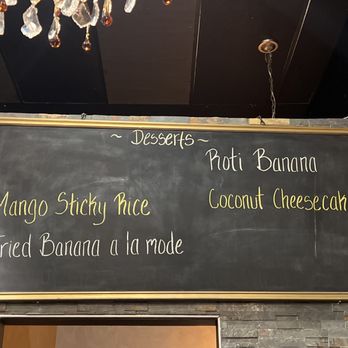 ~ Desserts ~
Roti Banana
Mango Sticky Rice
Coconut Cheesecak
Fried Banana a la mode